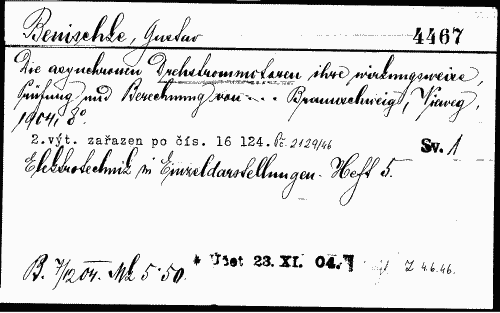 Benischke, Gustav
4467
Die asynchronen Drehstrommotoren ihre wirkungsweise,
Prüfung und Berechnung von ... Braunschweig, Vieweg,
1904, 8°.
2.výt. zařazen po čís. 16 124. č. 2129/46
Sv. 1
Elektrotechnik in Einzeldarstellungen. Heft 5.
B. 7/12 04. Mk 5·50.
* Účet 23. XI. 04.
Z 4.6.46.